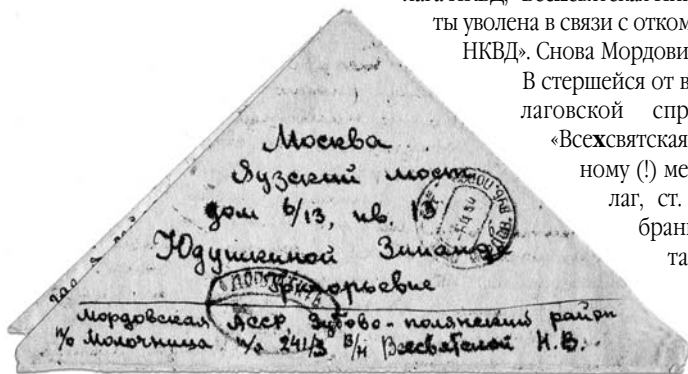 лага НКВД,
ты уволена в связи с отком
НКВД». Снова Мордови
В стершейся от в
лаговской спр
«Всехсвятская
ному (!) ме
лаг, ст.
бранн
та
Москва
Яузский мост
дом 6/13, кв. 13
Юдушкиной Зинаиде
Григорьевне
Мордовская АССР, Зубово-полянский район
п/о Молочница п/я 241/3 в/н Всесвятской Н.В.